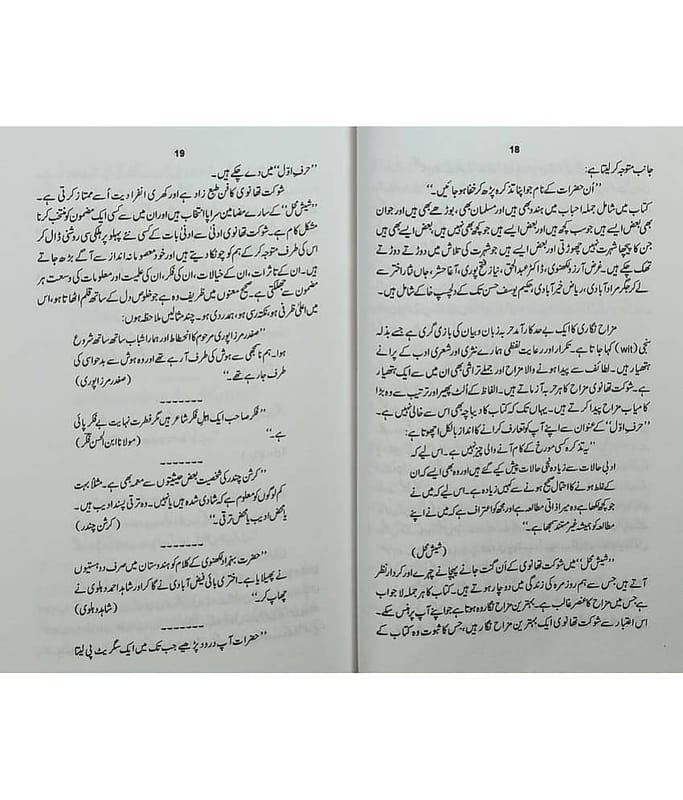 18
جانب متوجہ کر لیتا ہے:
’’اُن حضرات کے نام جو اپنا تذکرہ پڑھ کر خفا ہو جائیں۔‘‘
کتاب میں شامل جملہ احباب میں ہندو بھی ہیں اور مسلمان بھی، بوڑھے بھی ہیں اور جوان
بھی بعض ایسے ہیں جو سب کچھ ہیں اور بعض ایسے ہیں جو کچھ بھی نہیں ہیں، بعض ایسے بھی ہیں
جن کا پیچھا شہرت نہیں چھوڑتی اور بعض ایسے ہیں جو شہرت کی تلاش میں دوڑتے دوڑتے
تھک چکے ہیں۔ غرض آرزو لکھنوی، ڈاکٹر عبدالحق، نیاز فتح پوری، آغا حشر، جاں نثار اختر سے
لے کر جگر مراد آبادی، ریاض خیر آبادی، حکیم یوسف حسن تک کے دلچسپ خاکے شامل ہیں۔
مزاح نگاری کا ایک بے حد کارآمد حربہ زبان و بیان کی بازی گری ہے جسے بذلہ
سنجی (wit) کہا جاتا ہے۔ تکرار اور رعایت لفظی ہمارے نثری اور شعری ادب کے پرانے
ہتھیار ہیں۔ لطائف سے پیدا ہونے والا مزاح اور جملے تراشی بھی ان میں سے ایک ہتھیار
ہے۔ شوکت تھانوی مزاح کا ہر حربہ آزماتے ہیں۔ الفاظ کے اُلٹ پھیر اور ترتیب سے وہ بڑا
کامیاب مزاح پیدا کرتے ہیں۔ یہاں تک کہ کتاب کا دیباچہ بھی اس سے خالی نہیں ہے۔
’’حرفِ اوّل‘‘ کے عنوان سے اپنے آپ کو تعارف کرانے کا انداز بالکل اچھوتا ہے:
’’یہ تذکرہ کسی مورخ کے کام آنے والی چیز نہیں ہے۔ اس لیے کہ
ادبی حالات سے زیادہ نجی حالات پیش کیے گئے ہیں اور وہ بھی ایسے کہ ان
کے غلط ہونے کا احتمال صحیح ہونے سے کہیں زیادہ ہے۔ اس لیے کہ میں نے
جو کچھ لکھا ہے وہ میرا ذاتی مطالعہ ہے اور مجھ کو اعتراف ہے کہ میں نے اپنے
مطالعہ کو ہمیشہ غیر مستند سمجھا ہے۔‘‘
(شیش محل)
’’شیش محل‘‘ میں شوکت تھانوی کے اَن گنت جانے پہچانے چہرے اور کردار نظر
آتے ہیں جن سے ہم روزمرہ کی زندگی میں دوچار ہوتے ہیں۔ کتاب کا ہر جملہ لاجواب
ہے جس میں مزاح کا عنصر غالب ہے۔ بہترین مزاح نگار وہ ہوتا ہے جو اپنے آپ پر ہنس سکے۔
اس اعتبار سے شوکت تھانوی ایک بہترین مزاح نگار ہیں، جس کا ثبوت وہ کتاب کے
19
’’حرفِ اوّل‘‘ میں دے چکے ہیں۔
شوکت تھانوی کا فن طبع زاد ہے اور کھری انفرادیت اُسے ممتاز کرتی ہے۔
’’شیش محل‘‘ کے سارے مضامین سراپا انتخاب ہیں اور ان میں سے کسی ایک مضمون کو منتخب کرنا
مشکل کام ہے۔ شوکت تھانوی ادنیٰ سے ادنیٰ بات کے کسی نئے پہلو پر ہلکی سی روشنی ڈال کر
اس کی طرف متوجہ کر کے ہم کو چونکا دیتے ہیں اور خود معصومانہ انداز سے آگے بڑھ جاتے
ہیں۔ ان کے تاثرات، ان کے خیالات، ان کی فکر، ان کی علمیت اور معلومات کی وسعت ہر
مضمون سے جھلکتی ہے۔ صحیح معنوں میں ظریف وہ ہے جو خلوص دل کے ساتھ قلم اٹھاتا ہو، اس
میں اعلیٰ ظرفی ہو، نکتہ رسی ہو، ہمدردی ہو۔ چند مثالیں ملاحظہ ہوں:
’’صفدر مرزا پوری مرحوم کا انحطاط اور ہمارا شباب ساتھ ساتھ شروع
ہوا۔ ہم ناسمجھی سے ہوش کی طرف آ رہے تھے اور وہ ہوش سے بدحواسی کی
طرف جا رہے تھے۔‘‘ (صفدر مرزا پوری)
-------
’’فکر صاحب ایک اہلِ فکر شاعر ہیں مگر فطرت نہایت بے فکر پائی
ہے۔‘‘ (مولانا ابن الحسن فکر)
-------
’’کرشن چندر کی شخصیت بعض حیثیتوں سے معمہ بھی ہے۔ مثلاً بہت
کم لوگوں کو معلوم ہے کہ شادی شدہ ہیں یا نہیں۔ وہ ترقی پسند ادیب ہیں۔
یا محض ادیب یا محض ترقی۔‘‘ (کرشن چندر)
-------
’’حضرت بہزاد لکھنوی کے کلام کو ہندوستان میں صرف دو ہستیوں
نے پھیلایا ہے۔ اختری بائی فیض آبادی نے گا کر اور شاہد احمد دہلوی نے
چھاپ کر۔‘‘ (شاہد دہلوی)
-------
’’حضرات آپ درود پڑھیے جب تک میں ایک سگریٹ پی لیتا